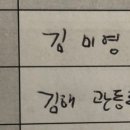 김미영
김해 관동